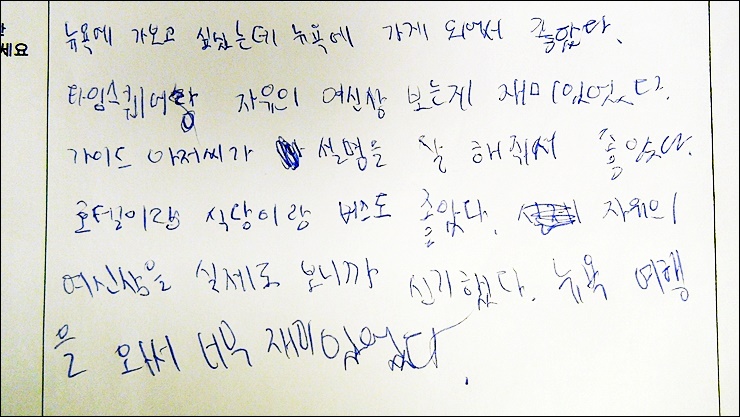 세요
뉴욕에 가보고 싶었는데 뉴욕에 가게 되어서 좋았다.
타임스퀘어랑 자유의 여신상 보는게 재미있었다.
가이드 아저씨가 설명을 잘 해줘서 좋았다.
호텔이랑 식당이랑 버스도 좋았다. 자유의
여신상을 실제로 보니까 신기했다. 뉴욕 여행
을 와서 너무 재미있었다.